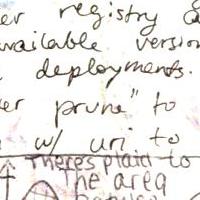 er registry
available version
deployments.
er prune" to
w/ uri to
There's plaid to
the area